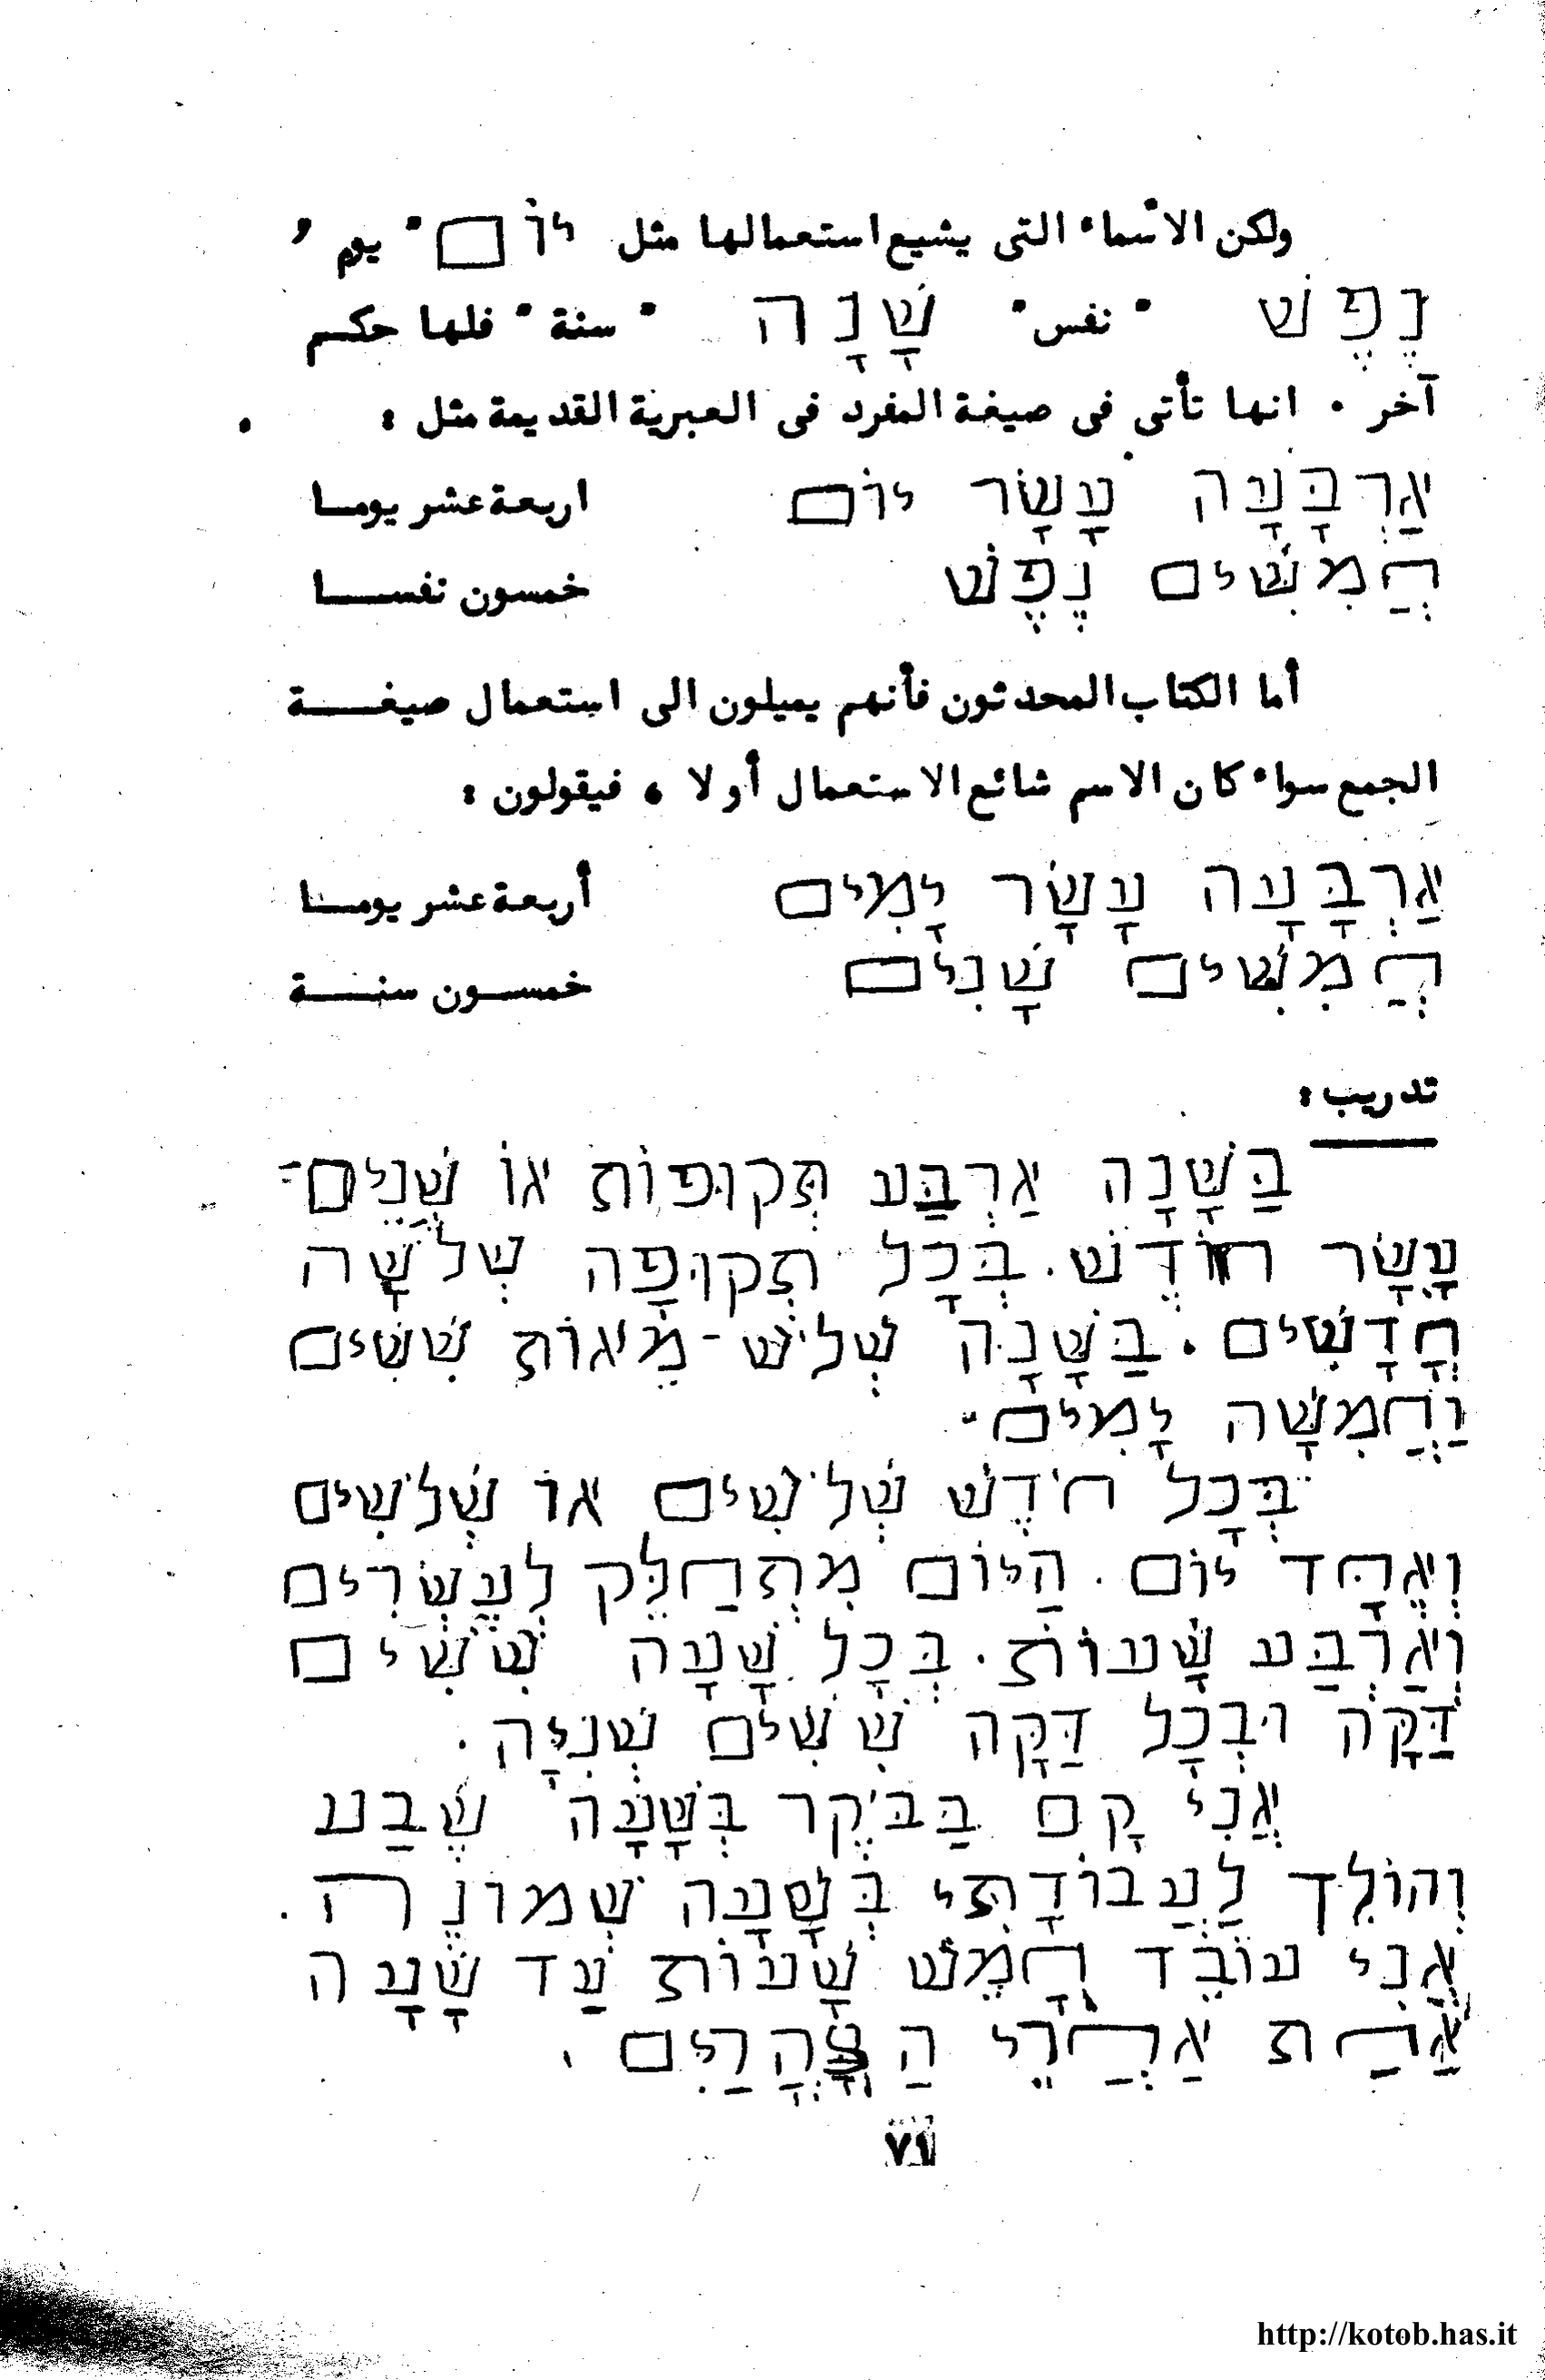 ولكن الأسماء التى يشيع استعمالها مثل יוֹם " يوم ,
נֶפֶשׁ " نفس " שָׁנָה " سنة " فلها حكم
آخر . انها تأتى فى صيغة المفرد فى العبرية القديمة مثل :
אַרְבָּעָה עָשָׂר יוֹם اربعة عشر يوما
חֲמִשִּׁים נֶפֶשׁ خمسون نفسا
أما الكتاب المحدثون فأنهم يميلون الى استعمال صيغة
الجمع سواء كان الاسم شائع الاستعمال أولا ، فيقولون :
אַרְבָּעָה עָשָׂר יָמִים أربعة عشر يوما
חֲמִשִּׁים שָׁנִים خمسون سنة
تدريب :
בַּשָּׁנָה אַרְבַּע תְּקוּפוֹת אוֹ שְׁנֵים-
עָשָׂר חוֹדֶשׁ. בְּכָל תְּקוּפָה שְׁלֹשָׁה
חֳדָשִׁים. בַּשָּׁנָה שְׁלֹישׁ-מֵאוֹת שִׁשִּׁים
וַחֲמִשָּׁה יָמִים.
בְּכָל חֹדֶשׁ שְׁלֹשִׁים אוֹ שְׁלֹשִׁים
וְאֶחָד יוֹם. הַיּוֹם מִתְחַלֵּק לְעֶשְׂרִים
וְאַרְבַּע שָׁעוֹת. בְּכָל שָׁעָה שִׁשִּׁים
דַּקָּה וּבְכָל דַּקָּה שִׁשִּׁים שְׁנִיָּה.
אֲנִי קָם בַּבֹּקֶר בְּשָׁעָה שֶׁבַע
וְהוֹלֵךְ לַעֲבוֹדָתִי בְּשָׁעָה שְׁמוֹנֶה.
אֲנִי עוֹבֵד חָמֵשׁ שָׁעוֹת עַד שָׁעָה
אַחַת אַחֲרֵי הַצָּהֳרַיִם.
٧١
http://kotob.has.it